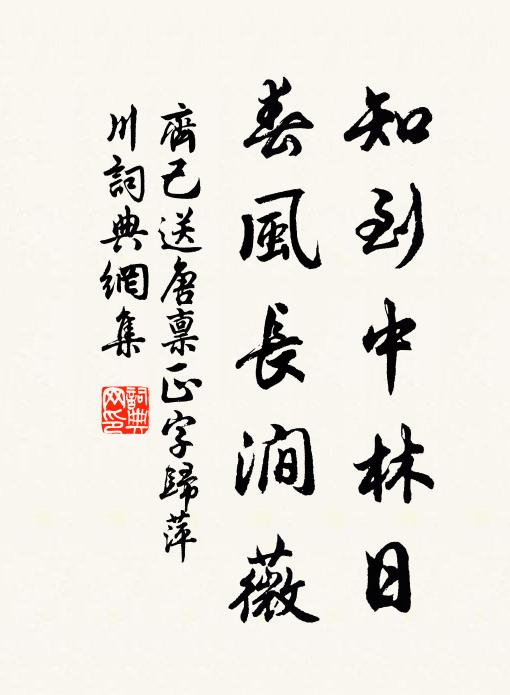 知到中林日
春風長澗薇
齊己送唐稟正字歸萍
川詞典網集
詞典
网印